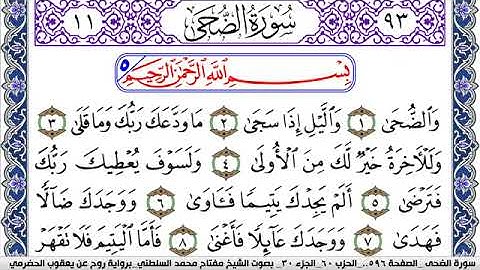 ٩٣ سُورَةُ الضُّحَىٰ ١١
بِسْمِ اللَّهِ الرَّحْمَٰنِ الرَّحِيمِ ٥
وَالضُّحَىٰ ١ وَالَّيْلِ إِذَا سَجَىٰ ٢ مَا وَدَّعَكَ رَبُّكَ وَمَا قَلَىٰ ٣
وَلَلْآخِرَةُ خَيْرٌ لَّكَ مِنَ الْأُولَىٰ ٤ وَلَسَوْفَ يُعْطِيكَ رَبُّكَ
فَتَرْضَىٰ ٥ أَلَمْ يَجِدْكَ يَتِيمًا فَـَٔاوَىٰ ٦ وَوَجَدَكَ ضَآلًّا
فَهَدَىٰ ٧ وَوَجَدَكَ عَآئِلًا فَأَغْنَىٰ ٨ فَأَمَّا الْيَتِيمَ فَلَا تَقْهَرْ
سورة الضحى _الصفحة ٥٩٦.. الحزب ٦٠_الجزء ٣٠_ بصوت الشيخ مفتاح محمد السلطني_برواية روح عن يعقوب الحضرمي